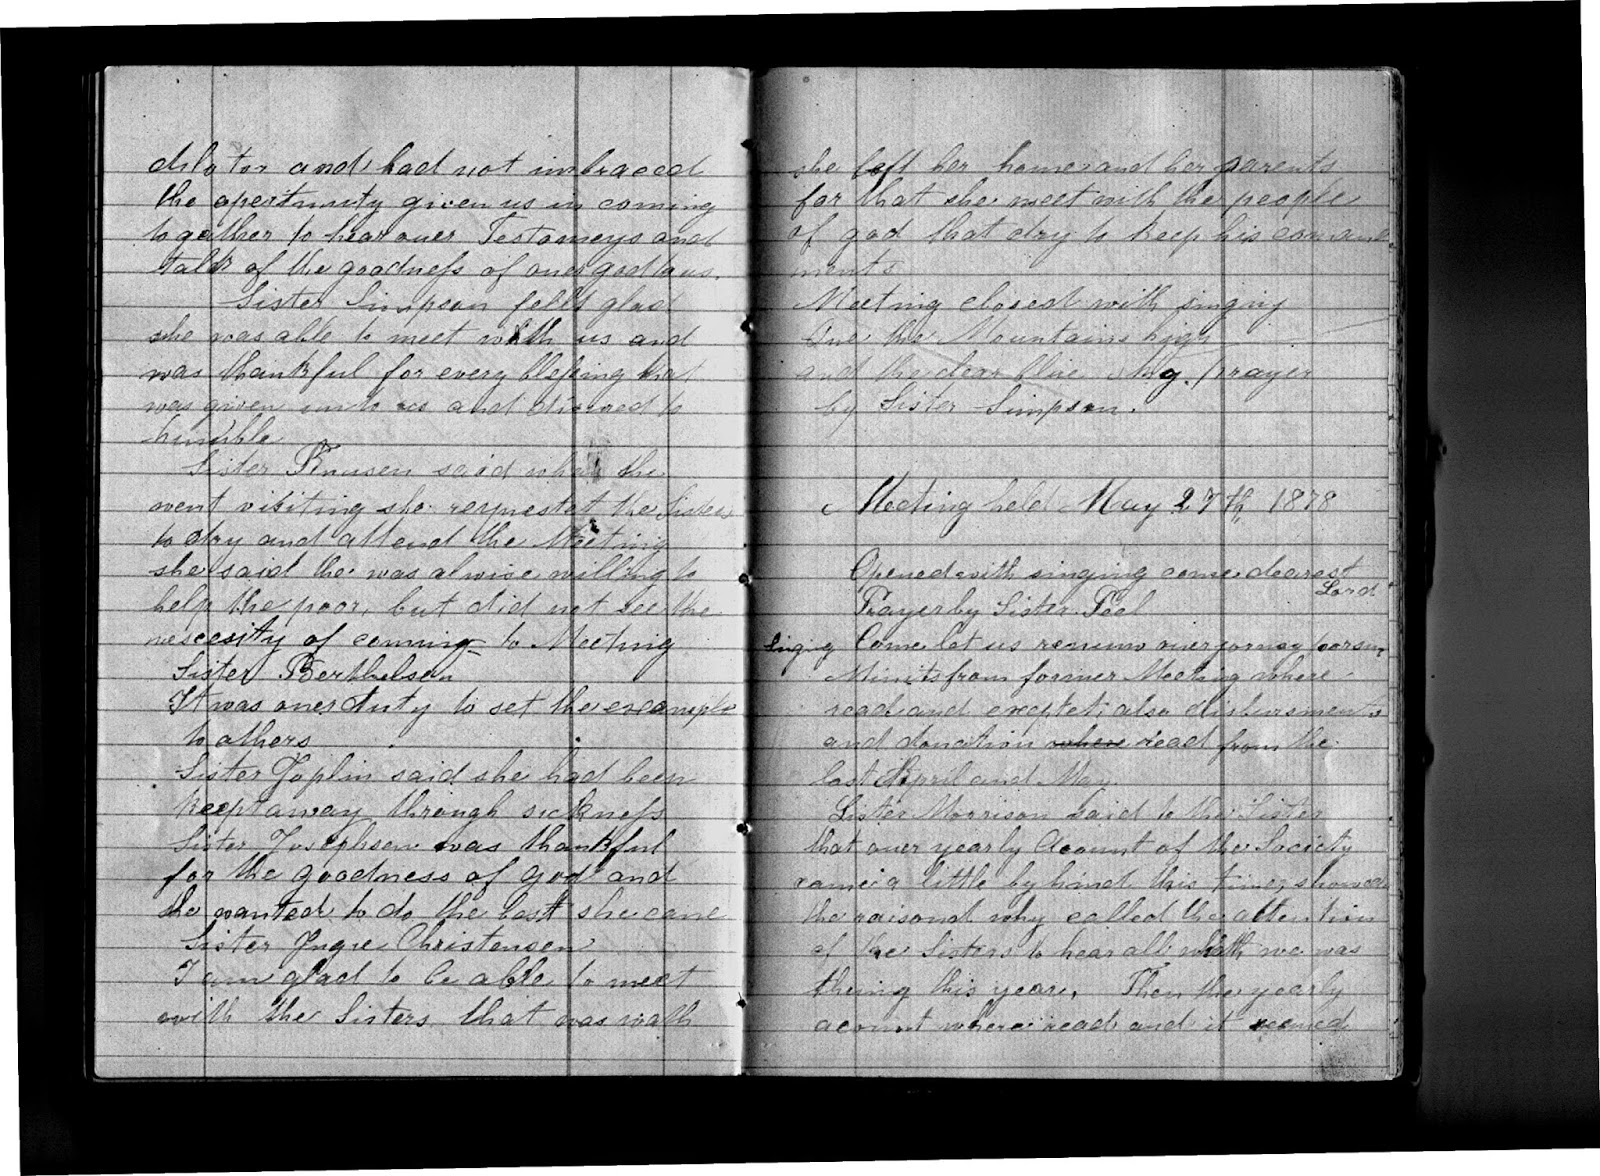 dilator and had not imbraced
the opertunity given us in coming
to gather to hear ouer Testomeys and
talk of the goodness of ouer god to us.
Sister Simpson felt glad
she was able to meet with us and
was thankful for every blessing that
was given unto us and disired to
humble
Sister Knusen said when she
went visiting she requestet the Sisters
to dry and attend the Meeting
she said the was alwise willing to
help the poor, but did not see the
nescesity of coming to Meeting
Sister Berthelsen
It was ouer duty to set the example
to others
Sister Joplin said she had been
keept away through sickness
Sister Josephsen was thankful
for the goodness of god and
she wanted to do the best she cane
Sister Ingre Christensen
I am glad to be able to meet
with the Sisters that was wath
she left her home and her parents
for that she meet with the people
of god that dry to keep his comand
ments
Meeting closed with singing
One the Mountains high
and the clear blue sky. Prayer
by Sister Simpson.
Meeting held May 27th 1878
Opened with singing come dearest
Lord
Prayer by Sister Peel
Singig Come let us renuw ouer jorney
Minits from former Meeting where
read and exceptet, also disbursments
and donation where read from the
last April and May
Sister Morrison said to the Sister
that ouer yearly Acount of the Society
came a little by hind this time, showed
the raisond why called the attention
of the Sisters to hear all what we was
theing this year, Then the yearly
acount where read and it seemed